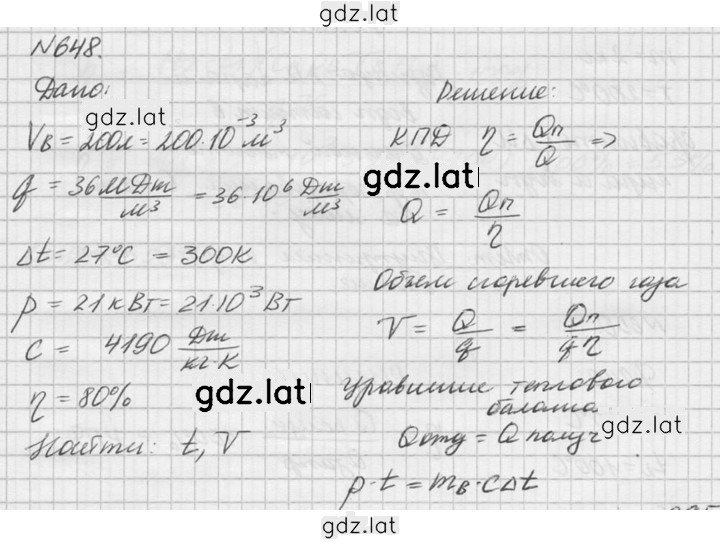 gdz.lat
N648.
Дано:
gdz.lat
Vв = 200л = 200·10⁻³ м³
q = 36 МДж/м³ = 36·10⁶ Дж/м³
Δt = 27°C = 300K
p = 21 кВт = 21·10³ Вт
c = 4190 Дж/кг·К
η = 80%
gdz.lat
Найти: t, V
Решение:
КПД η = Qп/Q =>
gdz.lat
Q = Qп/η
Объем сгоревшего газа
V = Q/q = Qп/qη
Уравнение теплового
баланса
Qотд = Qполуч
p·t = mв·cΔt
gdz.lat